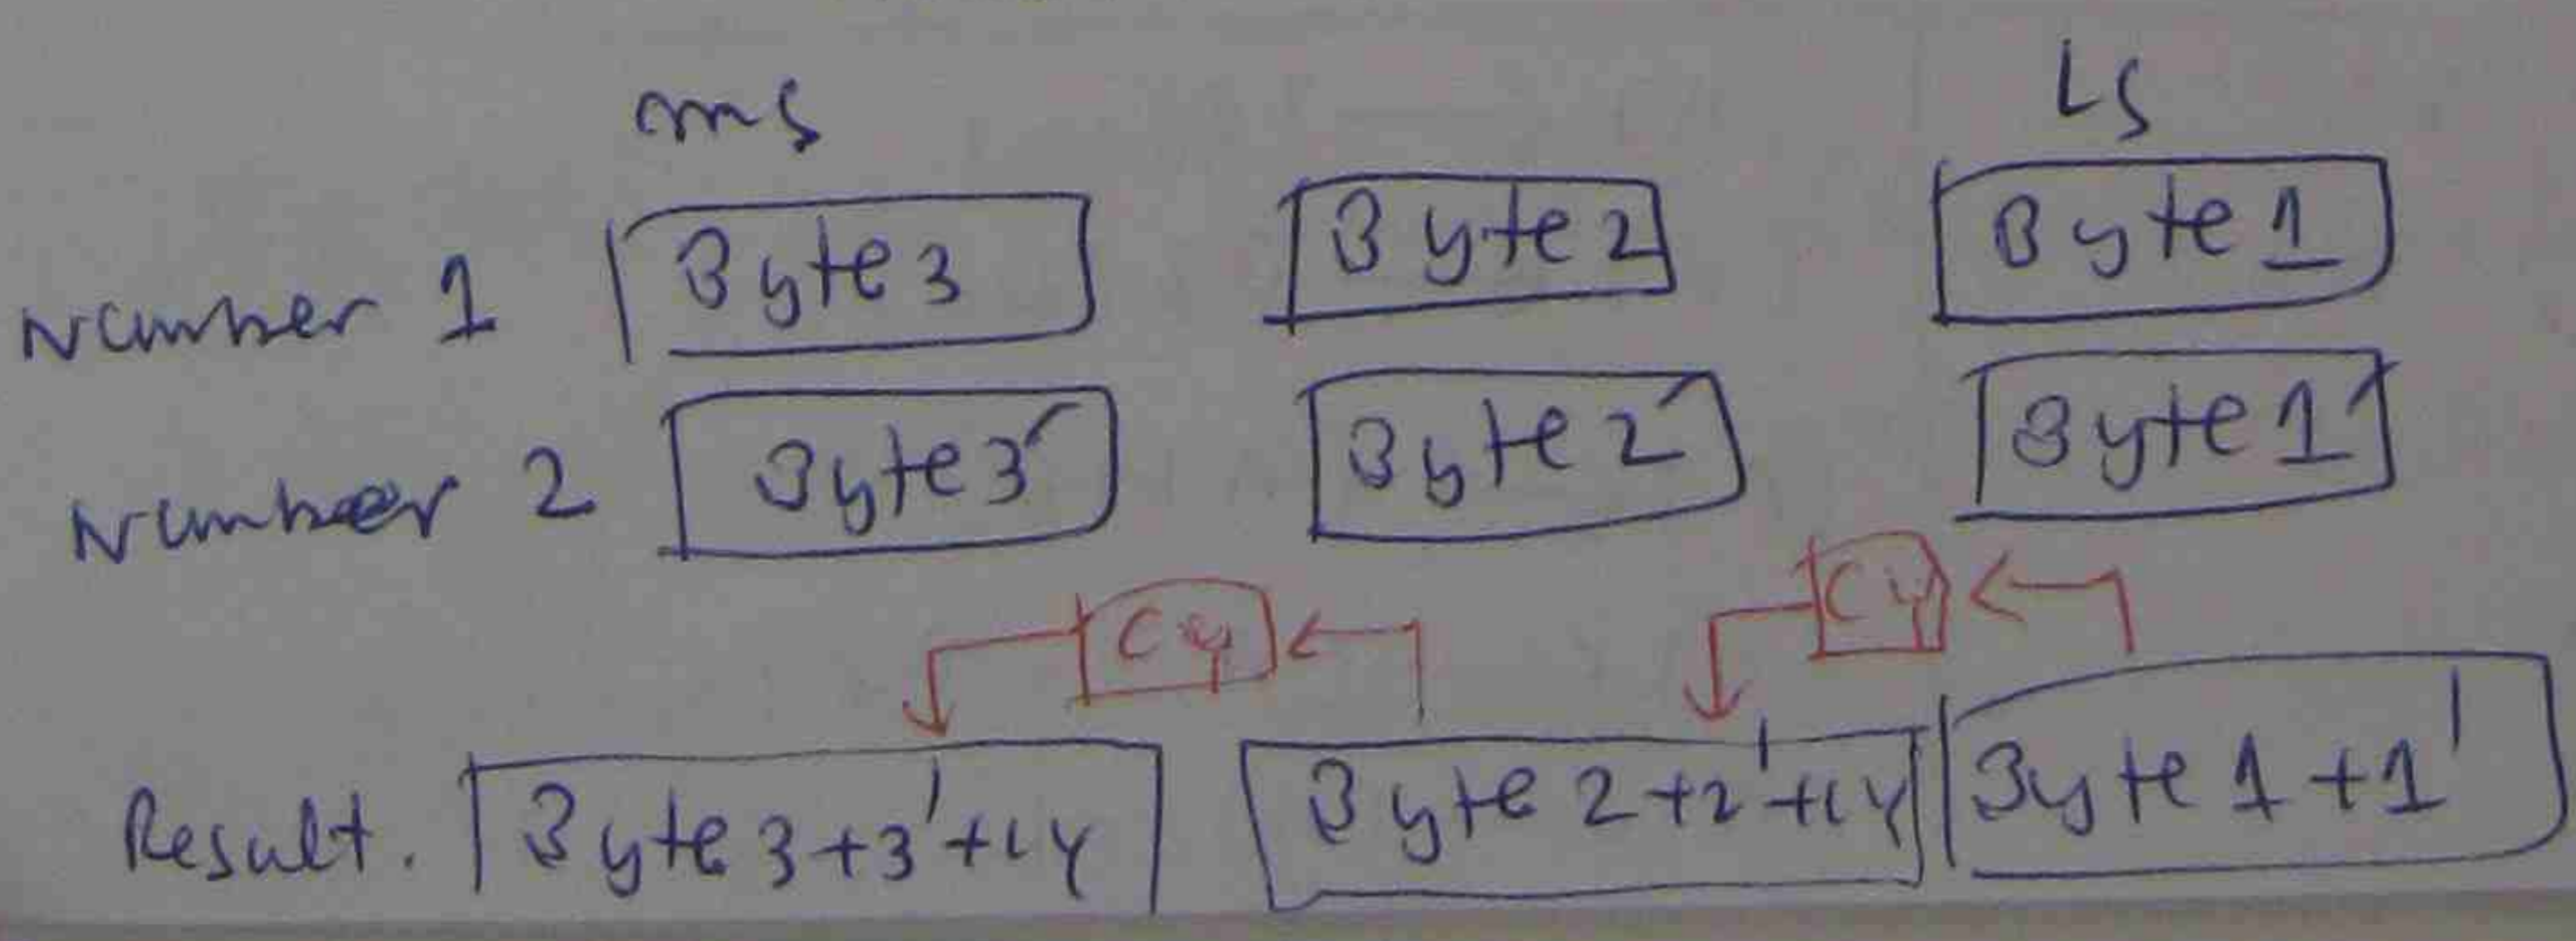 ms LS
Number 1 Byte 3 Byte 2 Byte 1
Number 2 Byte 3' Byte 2' Byte 1'
Cy Cy
Result. Byte 3+3'+cy Byte 2+2'+cy Byte 1+1'